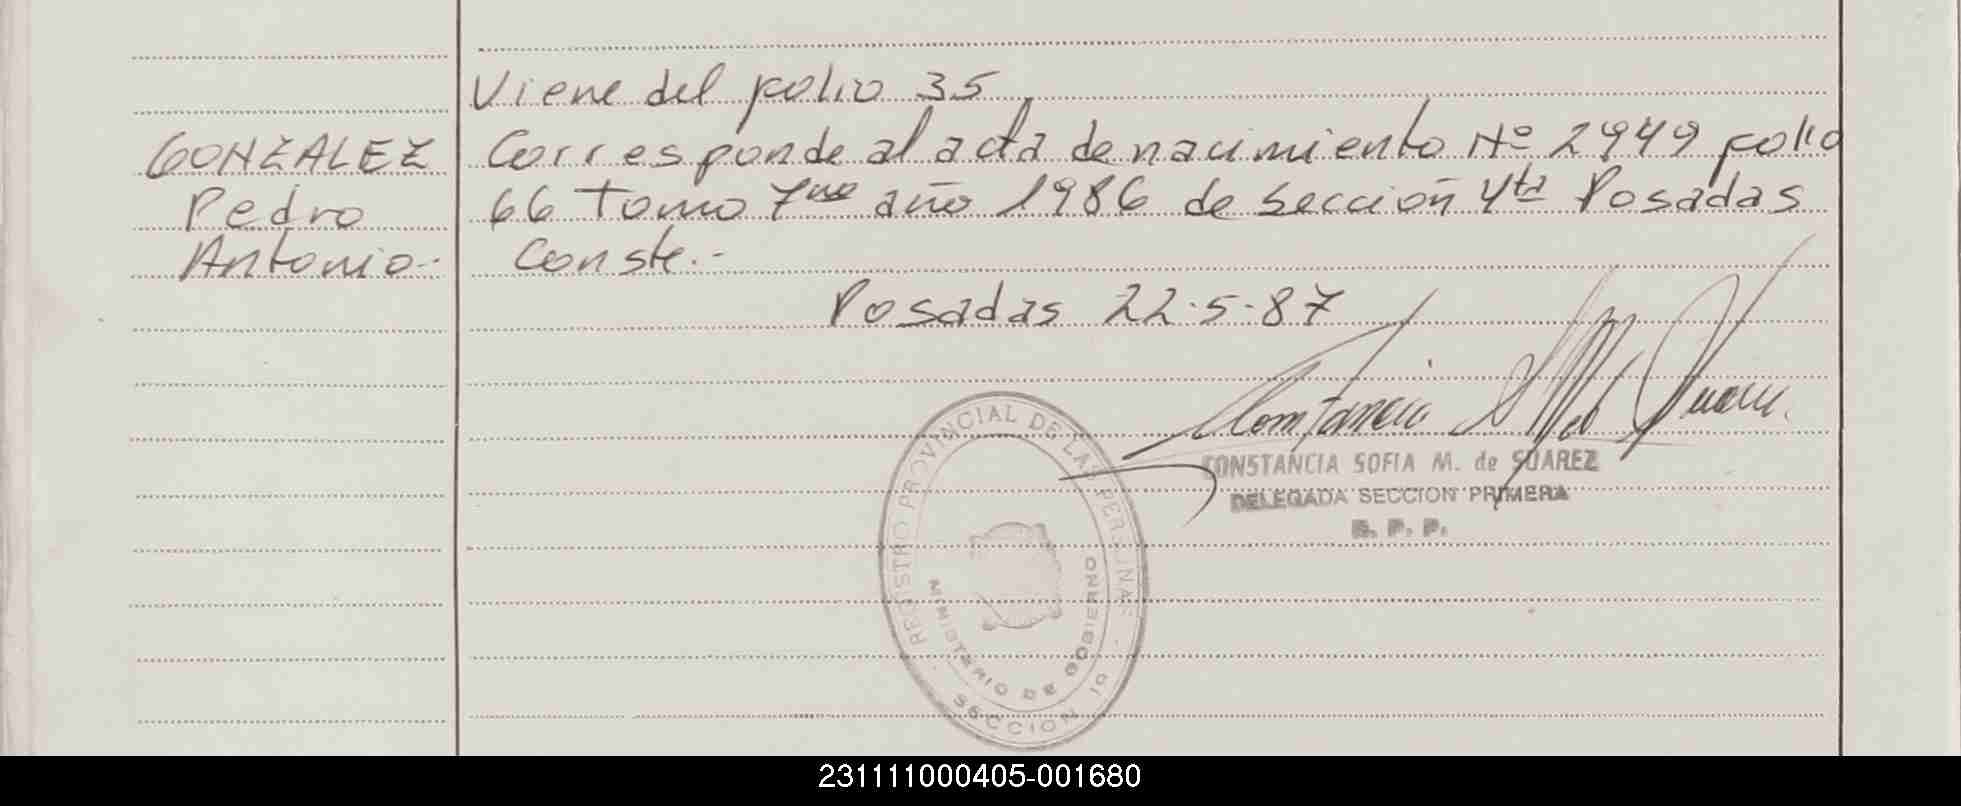 Viene del folio 35
GONZALEZ Corresponde al acta de nacimiento Nº 2949 folio
Pedro 66 Tomo 7mo año 1986 de sección 4ta Posadas
Antonio.- Conste.-
Posadas 22-5-87
Constancia S M de Suarez
CONSTANCIA SOFIA M. de SUAREZ
DELEGADA SECCION PRIMERA
R. P. P.
REGISTRO PROVINCIAL DE LAS PERSONAS
MINISTERIO DE GOBIERNO
SECCION 1a
231111000405-001680